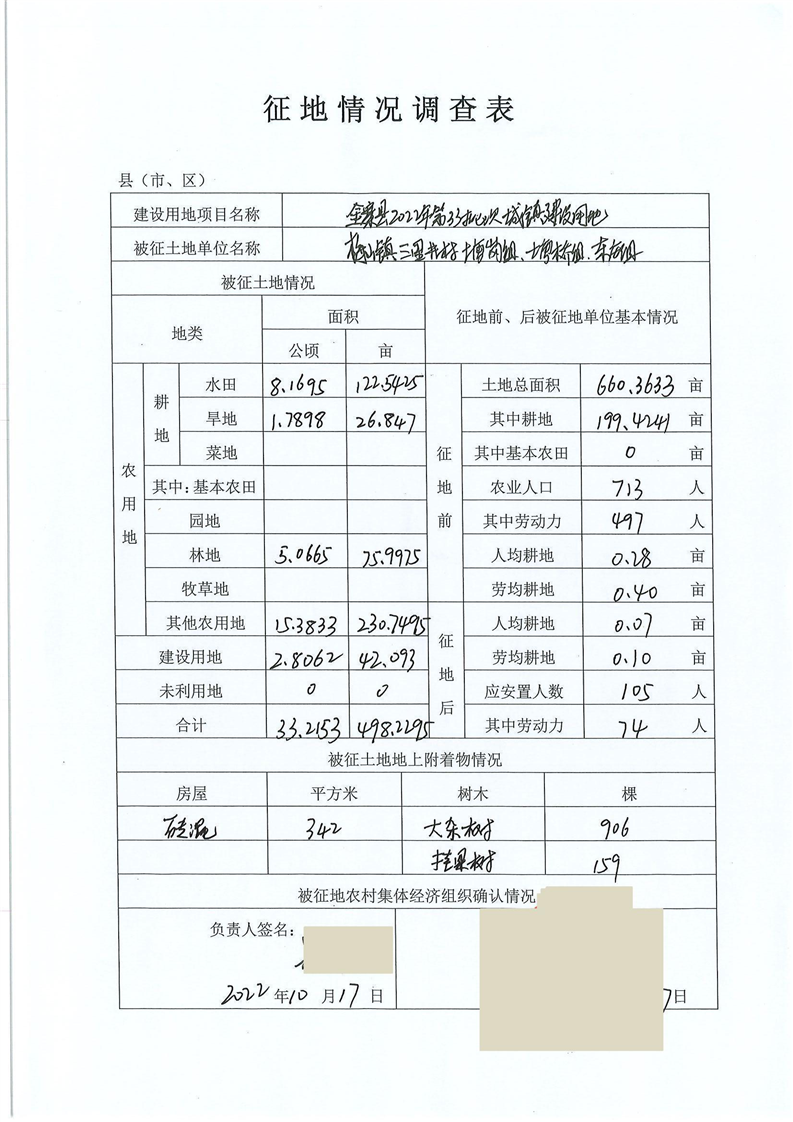 征地情况调查表
县（市、区）
建设用地项目名称 金寨县2022年第33批次城镇建设用地
被征土地单位名称 梅山镇三里井村
被征土地情况 征地前、后被征地单位基本情况
地类 面积
公顷 亩
农用地 耕地 水田 8.1695 122.5425 征地前 土地总面积 660.3633 亩
旱地 1.7898 26.847 其中耕地 199.4241 亩
菜地 其中基本农田 0 亩
其中:基本农田 农业人口 713 人
园地 其中劳动力 497 人
林地 5.0665 75.9975 人均耕地 0.28 亩
牧草地 劳均耕地 0.40 亩
其他农用地 15.3833 230.7495 征地后 人均耕地 0.07 亩
建设用地 2.8062 42.093 劳均耕地 0.10 亩
未利用地 0 0 应安置人数 105 人
合计 33.2153 498.2295 其中劳动力 74 人
被征土地地上附着物情况
房屋 平方米 树木 棵
砖混 342 大杂树 906
挂果树 159
被征地农村集体经济组织确认情况
负责人签名：
2022 年 10 月 17 日 7日